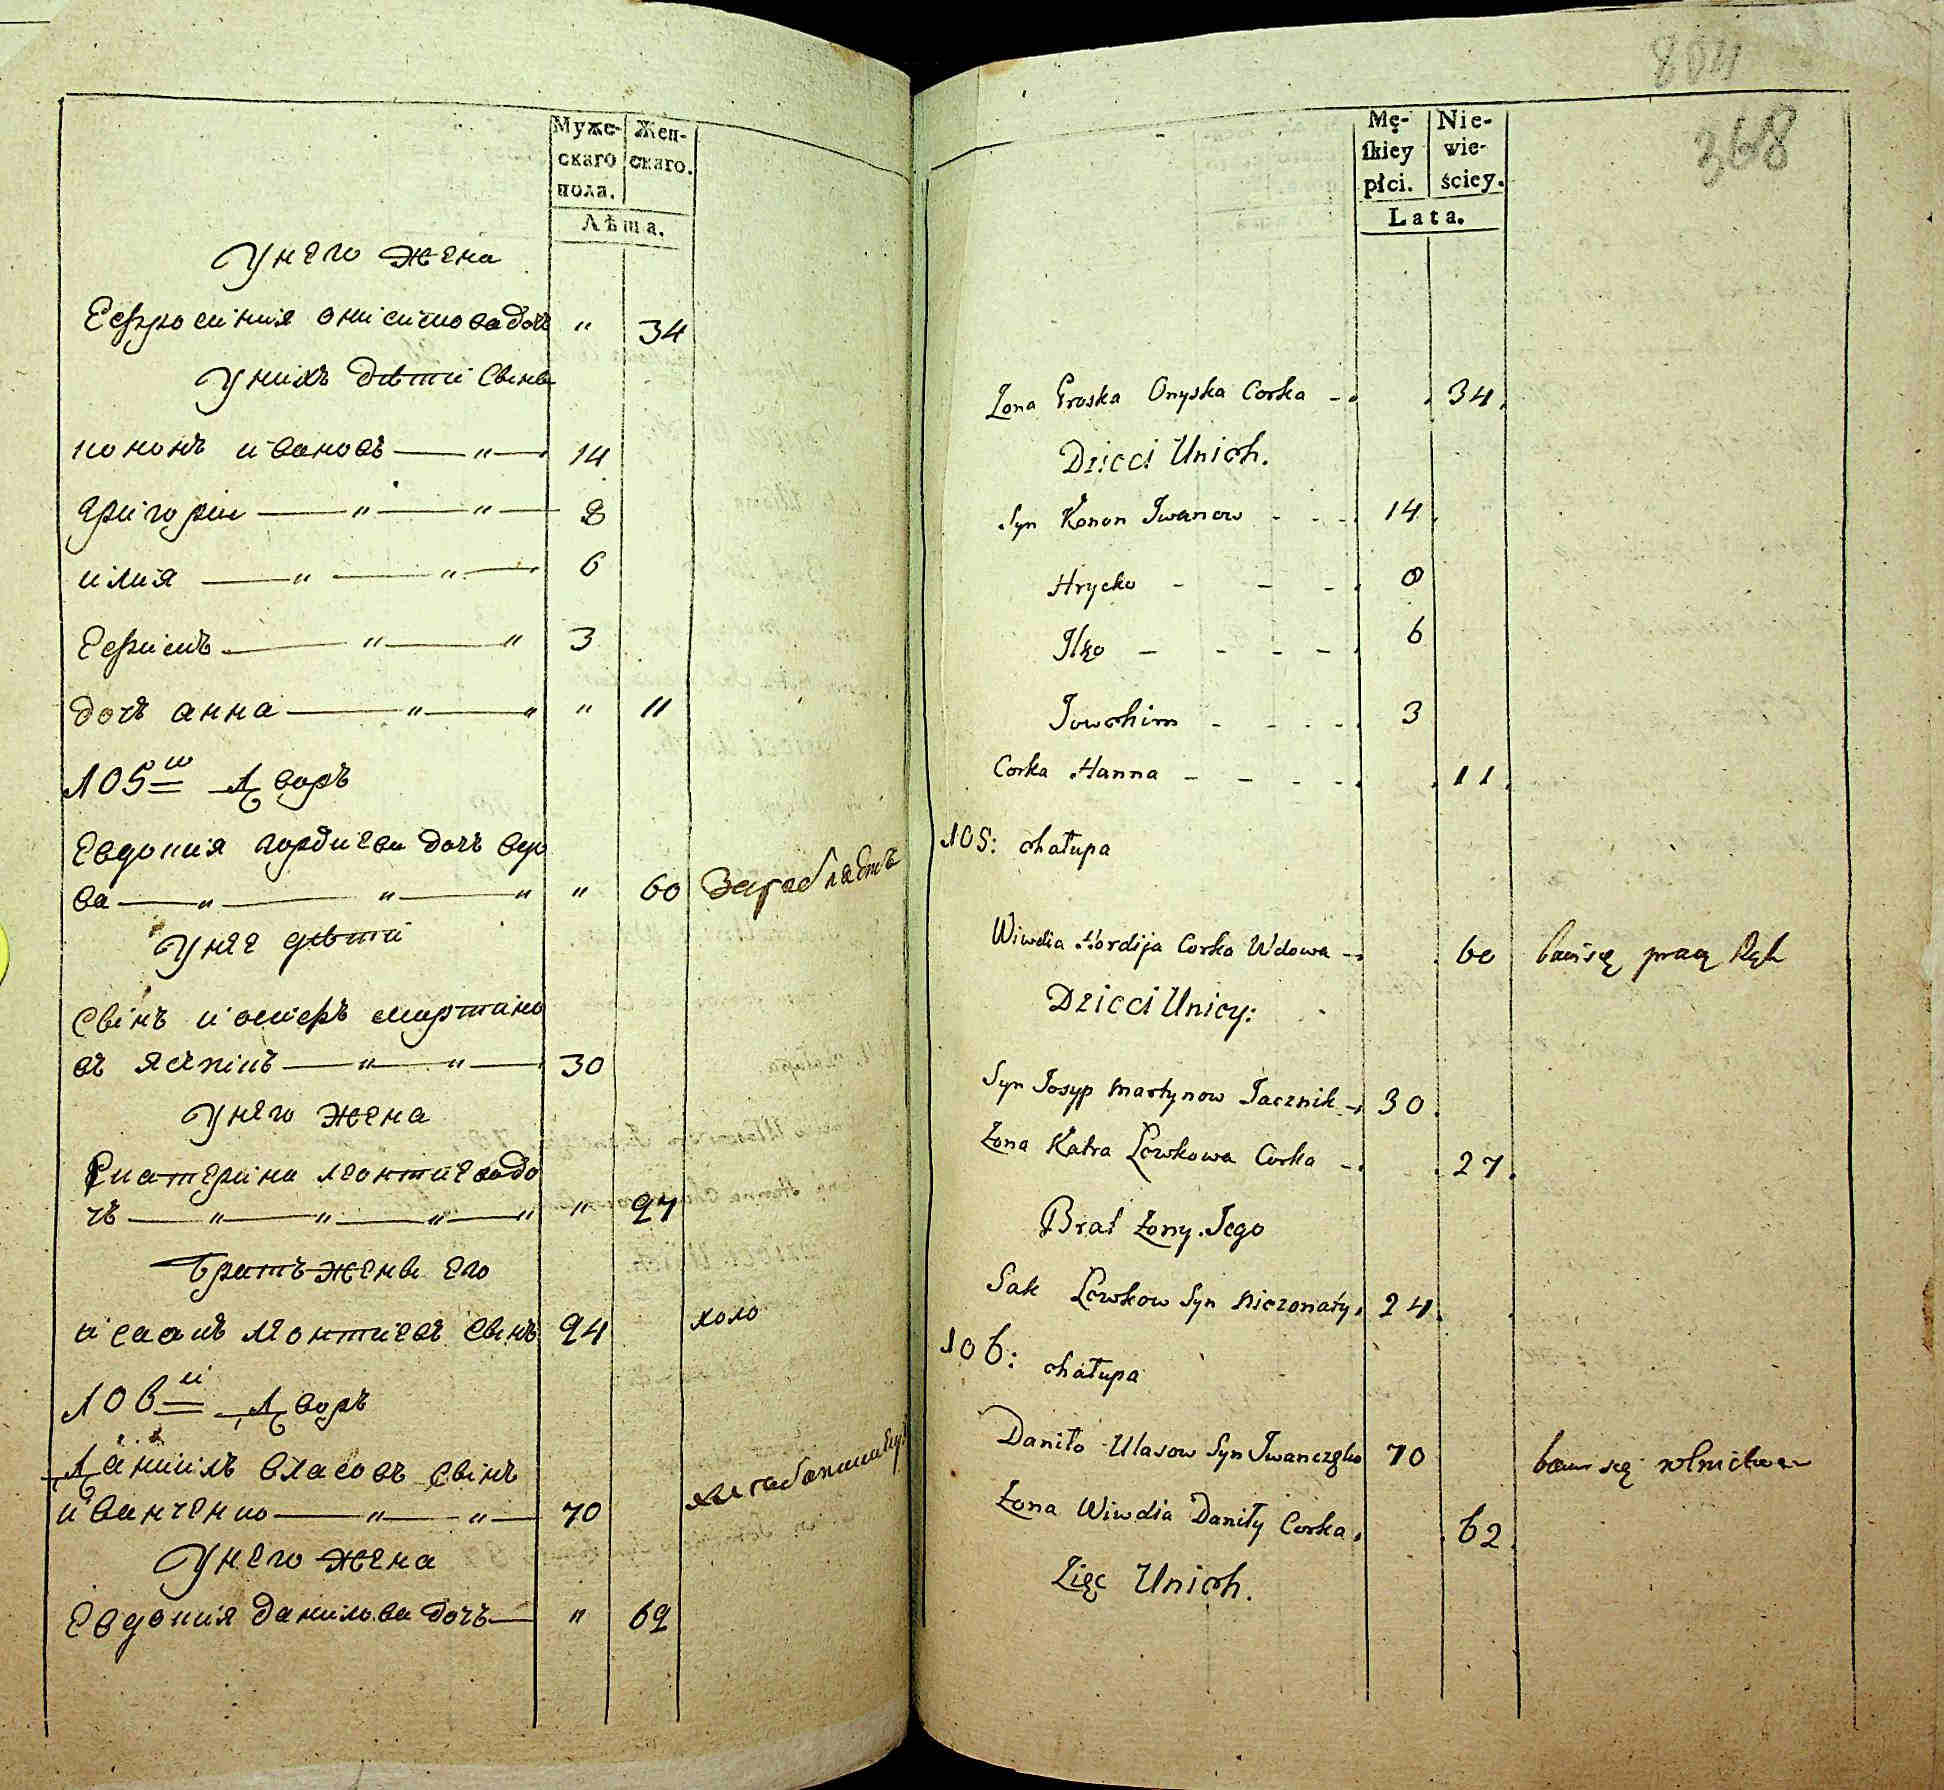 Муже- Жен-
скаго скаго.
пола.
Лѣта.
У него жена
Ефросиния онисимова дочь " 34
У нихъ дѣти сынъ
кононъ ивановъ — " — 14
григории — " — " — 8
илия — " — " — 6
Ефимъ — " — " 3
дочь анна — " — " " 11
105й Дворъ
Евдокия гордиева дочь вдо
ва — " — " — " " 60
У нее дѣти
Сынъ иосифъ мартино
въ — " — " — 30
У него жена
Екатерина леонтиева до
чь — " — " — " — " " 27
Братъ жены его
исаакъ леонтиевъ сынъ 24 холо
106й Дворъ
Данилъ власовъ сынъ
иванченко — " — " — 70
У него жена
Евдокия данилова дочь — " 62
804
368
Mę- Nie-
skiey wie-
płci. ściey.
Lata.
Żona Proska Onyska Corka - 34.
Dzieci Unich.
Syn Konon Iwanow - - - 14.
Hrycko - - - 8
Ilko - - - - 6
Jowchim - - - - 3
Corka Hanna - - - - 11.
105: chałupa
Wiwdia Hordija Corka Wdowa - 60 bawi się pracą Rąk
Dzieci Unicy:
Syn Josyp Martynow Jacznik - 30.
Żona Katra Lewkowa Corka - 27.
Brat Żony Jego
Sak Lewkow Syn Nieżonaty. 24.
106: chałupa
Daniło Ulasow Syn Iwanczenko 70 bawi się rolnictwem
Żona Wiwdia Daniły Corka. 62.
Zięć Unich.